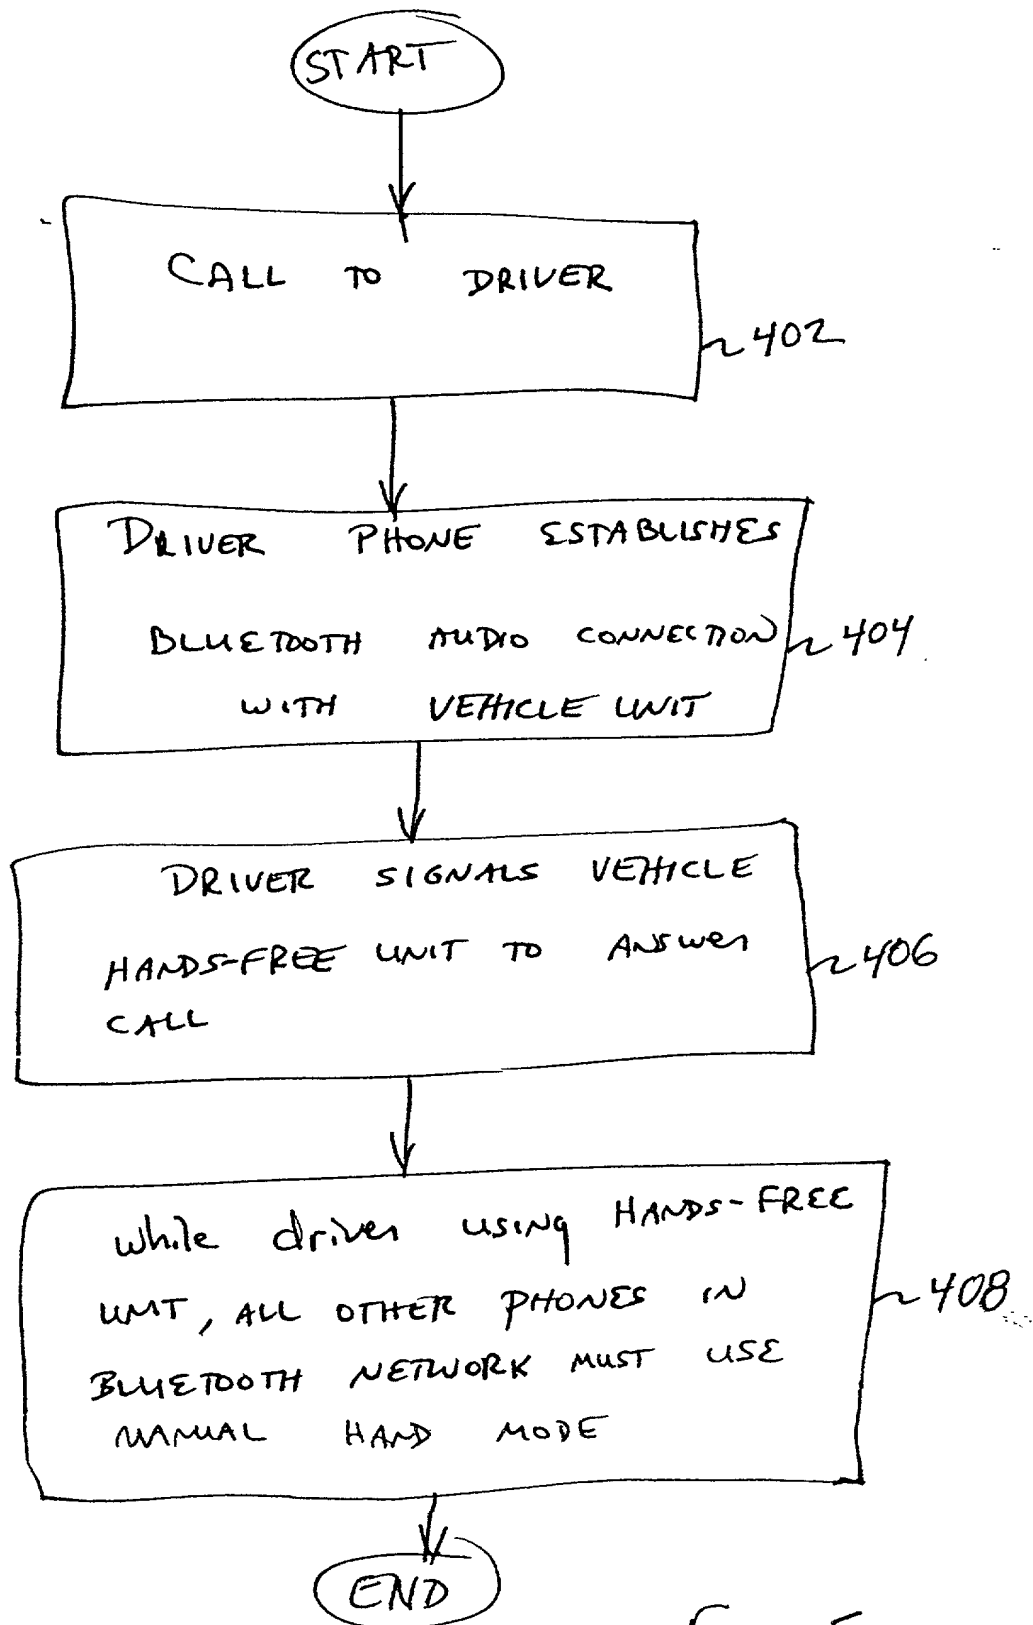 START
CALL TO DRIVER
402
DRIVER PHONE ESTABLISHES
BLUETOOTH AUDIO CONNECTION
WITH VEHICLE UNIT
404
DRIVER SIGNALS VEHICLE
HANDS-FREE UNIT TO ANSWER
CALL
406
while driver using HANDS-FREE
UNIT, ALL OTHER PHONES IN
BLUETOOTH NETWORK MUST USE
MANUAL HAND MODE
408
END